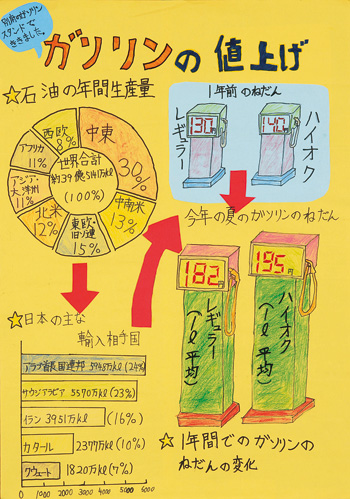 別府のガソリン
スタンドで
ききました。
ガソリンの値上げ
☆石油の年間生産量
中東
30%
中南米
13%
東欧・
旧ソ連
15%
北米
12%
アジア・
大洋州
11%
アフリカ
11%
西欧
8%
世界合計
(100%)
1年前のねだん
130円
レギュラー
ハイオク
今年の夏のガソリンのねだん
182円
レギュラー
(1ℓ平均)
195円
ハイオク
(1ℓ平均)
☆日本の主な
輸入相手国
アラブ首長国連邦 5945万kℓ (24%)
サウジアラビア 5570万kℓ (23%)
イラン 3951万kℓ (16%)
カタール 2377万kℓ (10%)
クウェート 1820万kℓ (7%)
0 1000 2000 3000 4000 5000 6000
☆1年間でのガソリンの
ねだんの変化